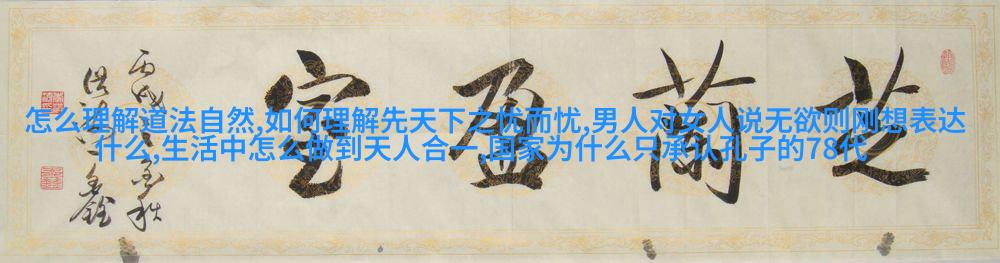 芝蘭盈室
丙戌之秋
怎么理解道法自然,如何理解先天下之忧而忧,男人对女人说无欲则刚想表达
什么,生活中怎么做到天人合一,国家为什么只承认孔子的78代